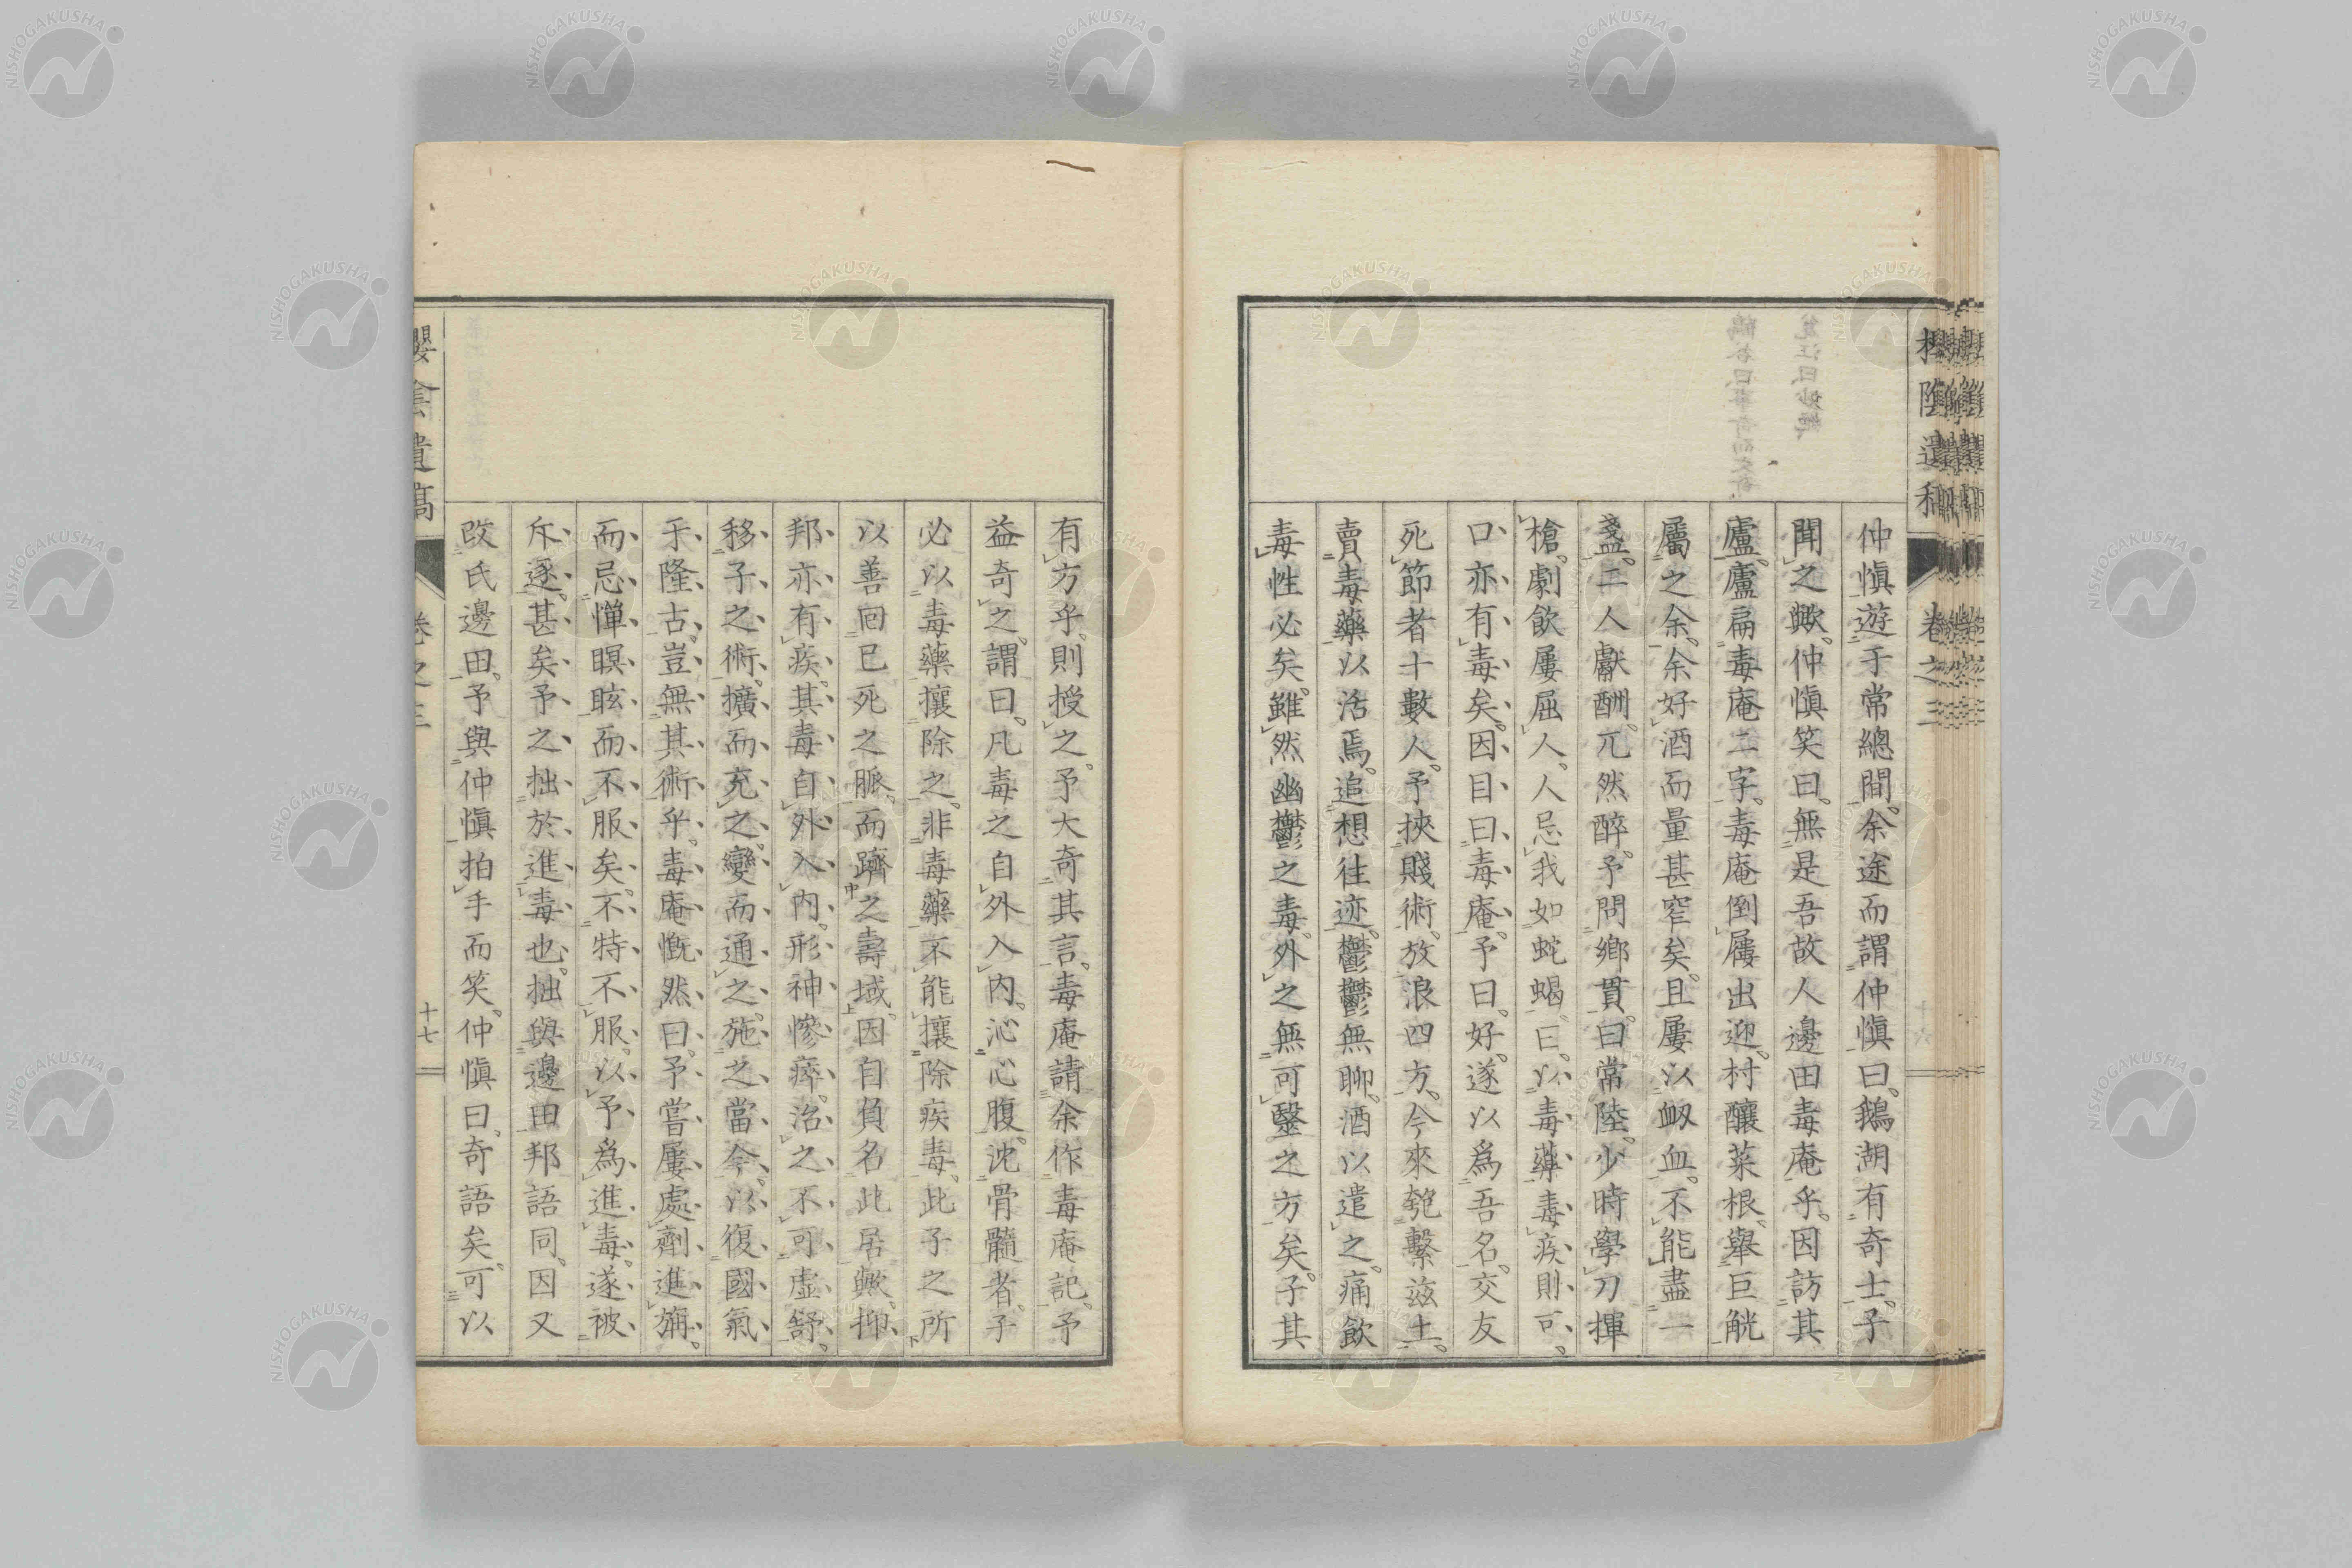 仲愼遊于常總間。余途而謂仲愼曰。鵝湖有奇士。子
聞之歟。仲愼笑曰。無是吾故人邊田毒庵乎。因訪其
廬。廬扁毒庵二字。毒庵倒屨出迎。村釀菜根。舉巨觥
屬之余。余好酒而量甚窄矣。且屢以衂血。不能盡一
盞。二人獻酬。兀然醉。予問鄉貫。曰常陸。少時學刀揮
槍。劇飲屢屈人。人忌我如蛇蝎。曰。以毒藥毒疾則可。
口亦有毒矣。因目曰毒庵。予曰。好。遂以爲吾名。交友
死節者十數人。予挾賤術。放浪四方。今來匏繫茲土。
賣毒藥以活焉。追想往迹。鬱鬱無聊。酒以遣之。痛飲
毒性必矣。雖然幽鬱之毒。外之無可毉之方矣。子其
櫻陰遺稿 卷之三
有方乎。則授之。予大奇其言。毒庵請余作毒庵記。予
益奇之。謂曰。凡毒之自外入內。沁心腹。沈骨髓者。子
必以毒藥攘除之。非毒藥不能攘除疾毒。此子之所
以善囘已死之脈。而躋之壽域。因自負名此居歟。抑
邦亦有疾。其毒自外入內。形神慘瘁。治之不可虛舒。
移子之術。擴而充之。變而通之。施之當今。以復國氣
于隆古。豈無其術乎。毒庵慨然曰。予嘗屢處劑進㫾。
而忌憚瞑眩而不服矣。不特不服。以予爲進毒。遂被
斥逐。甚矣予之拙於進毒也。拙與邊田邦語同。因又
改氏邊田。予與仲愼拍手而笑。仲愼曰。奇語矣。可以
櫻陰遺稿 卷之三 十七